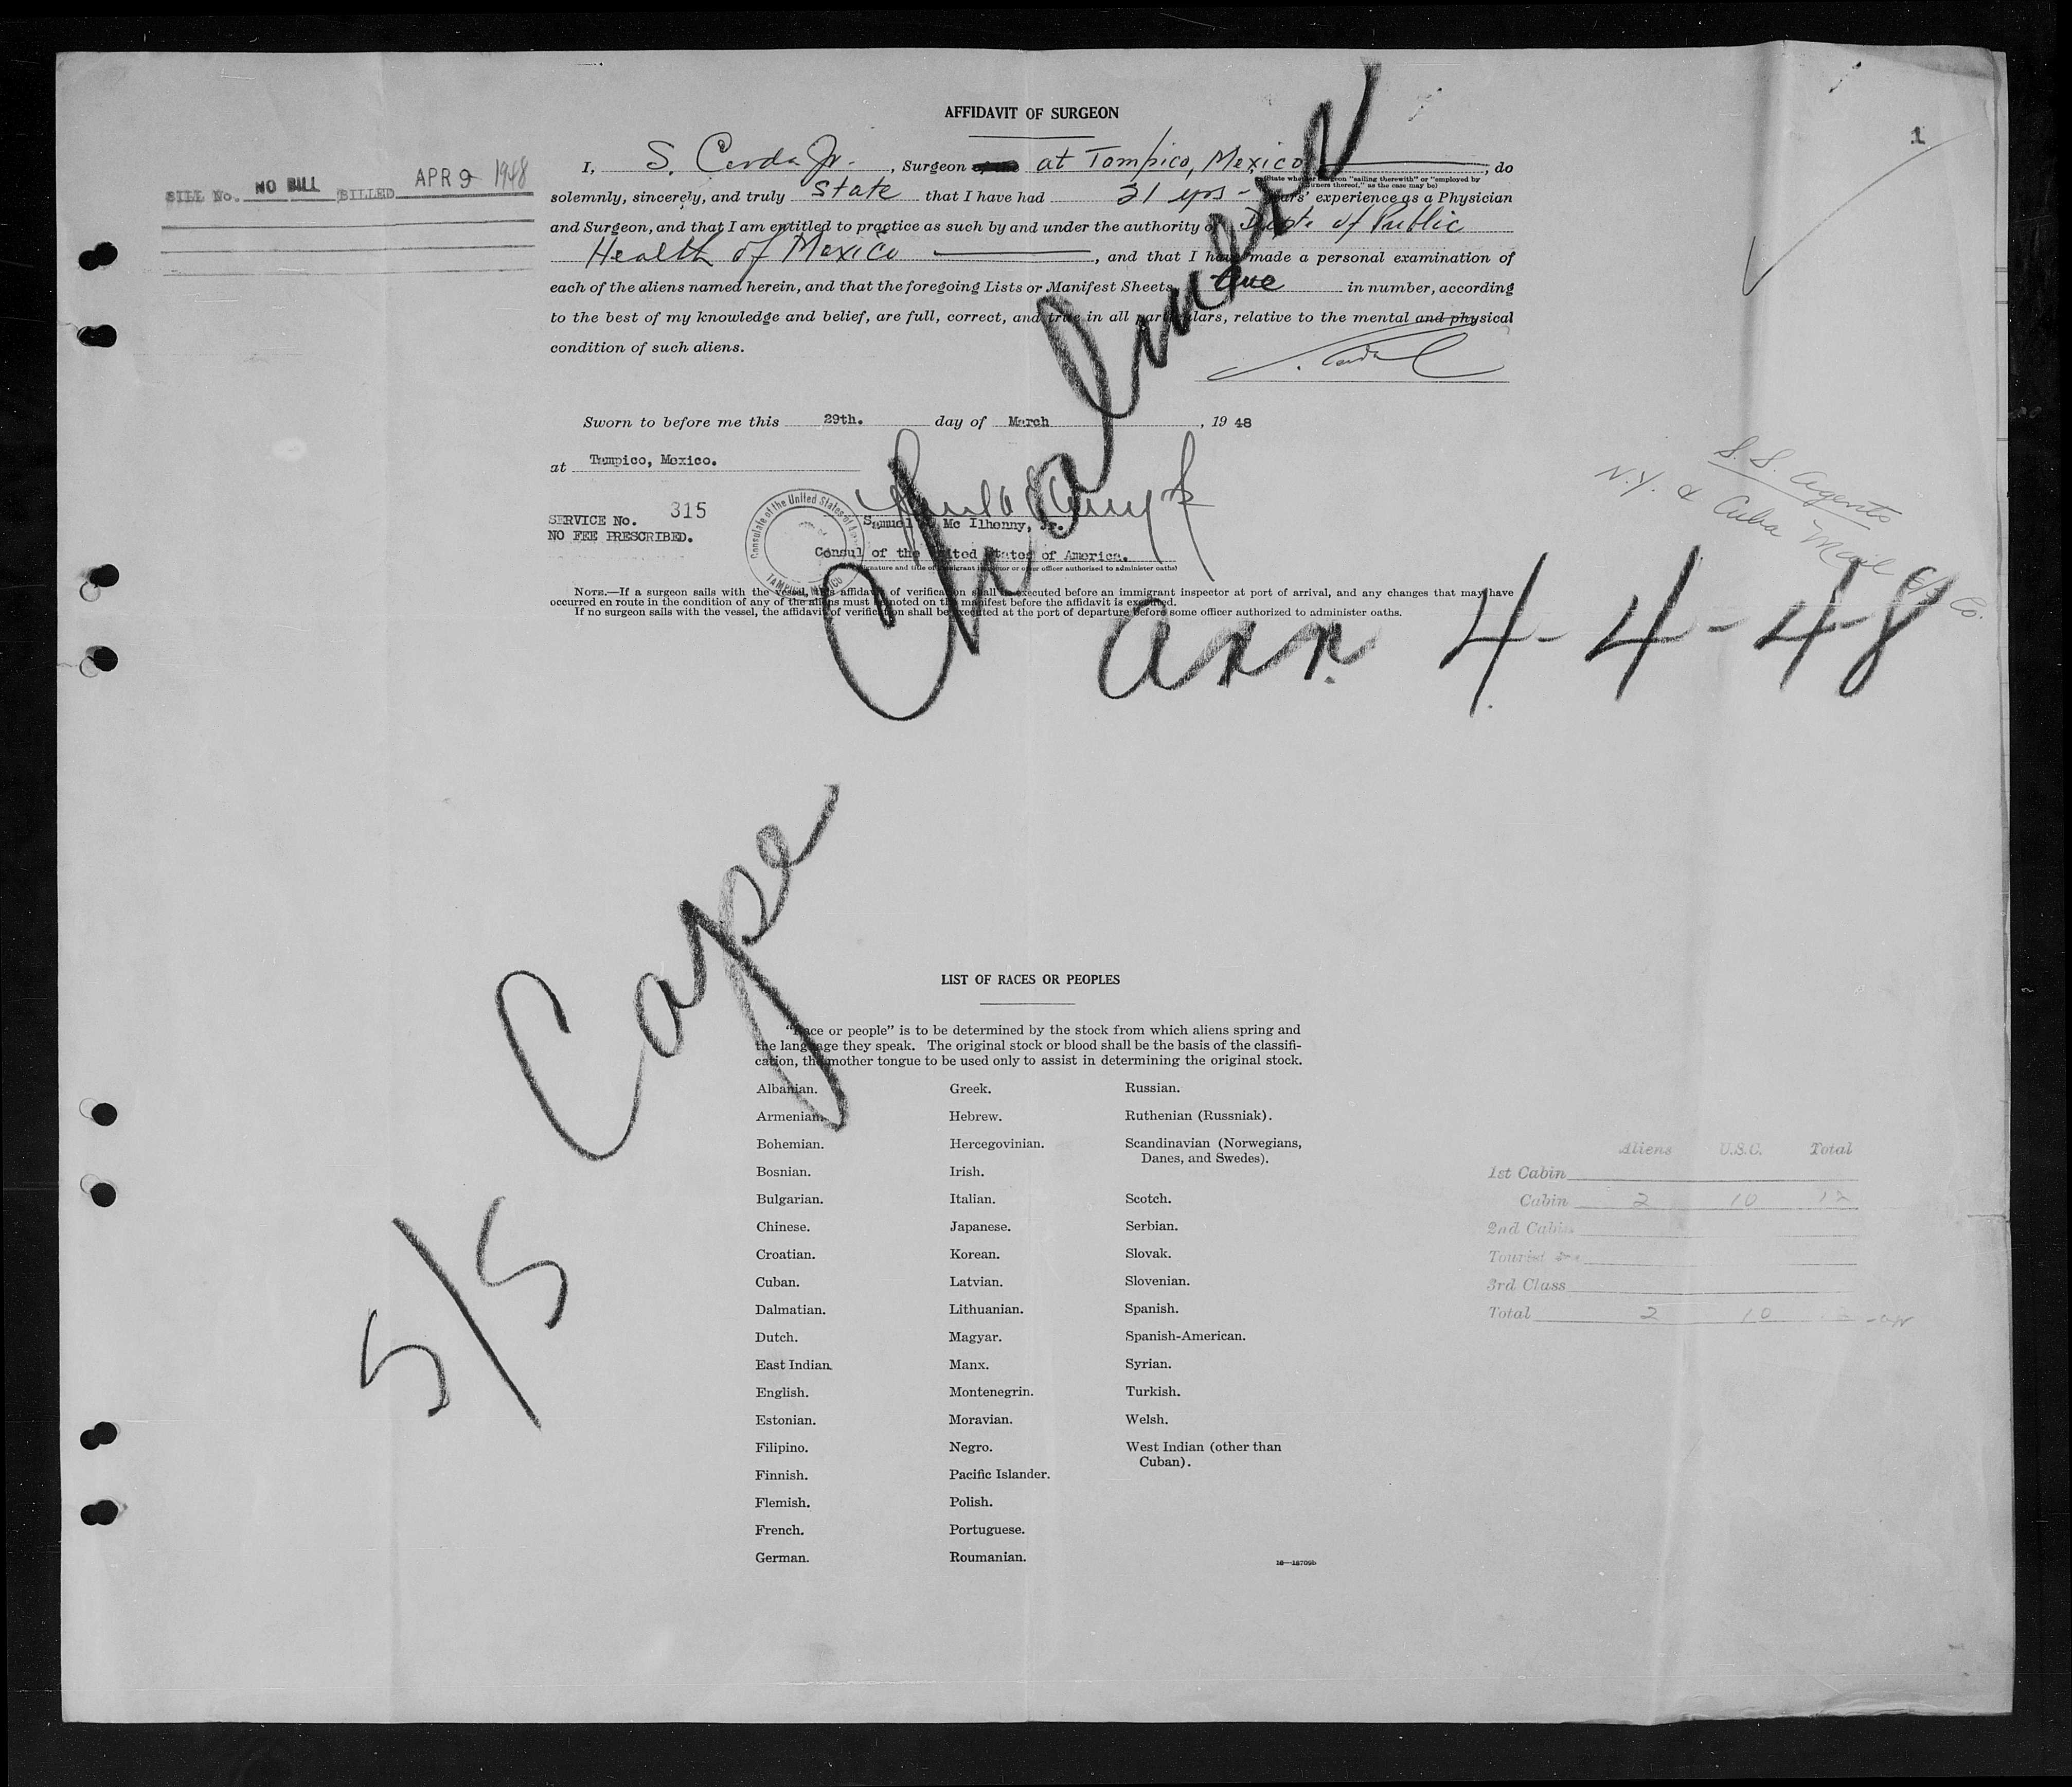 AFFIDAVIT OF SURGEON
1
BILL No. NO BILL BILLED APR 9 1948
I, S. Cerda Jr., Surgeon at Tampico, Mexico, do
(State whether surgeon "sailing therewith" or "employed by
owners thereof," as the case may be)
solemnly, sincerely, and truly state that I have had 21 yrs - years' experience as a Physician
and Surgeon, and that I am entitled to practice as such by and under the authority of Dept. of Public
Health of Mexico, and that I have made a personal examination of
each of the aliens named herein, and that the foregoing Lists or Manifest Sheets, in number, according
to the best of my knowledge and belief, are full, correct, and true in all particulars, relative to the mental and physical
condition of such aliens.
Sworn to before me this 29th. day of March, 19 48
at Tampico, Mexico.
SERVICE No. 315
NO FEE PRESCRIBED.
Consulate of the United States of America
TAMPICO, MEXICO
Samuel Mc Ilhenny, Jr.
Consul of the United States of America.
(Signature and title of immigrant inspector or other officer authorized to administer oaths)
NOTE.—If a surgeon sails with the vessel, this affidavit of verification shall be executed before an immigrant inspector at port of arrival, and any changes that may have
occurred en route in the condition of any of the aliens must be noted on the manifest before the affidavit is executed.
If no surgeon sails with the vessel, the affidavit of verification shall be executed at the port of departure before some officer authorized to administer oaths.
S.S. Agents
N.Y. & Cuba Mail S/S Co.
arr. 4-4-48
S/S Cape Chalmers
LIST OF RACES OR PEOPLES
"Race or people" is to be determined by the stock from which aliens spring and
the language they speak. The original stock or blood shall be the basis of the classifi-
cation, the mother tongue to be used only to assist in determining the original stock.
Albanian.
Armenian.
Bohemian.
Bosnian.
Bulgarian.
Chinese.
Croatian.
Cuban.
Dalmatian.
Dutch.
East Indian.
English.
Estonian.
Filipino.
Finnish.
Flemish.
French.
German.
Greek.
Hebrew.
Hercegovinian.
Irish.
Italian.
Japanese.
Korean.
Latvian.
Lithuanian.
Magyar.
Manx.
Montenegrin.
Moravian.
Negro.
Pacific Islander.
Polish.
Portuguese.
Roumanian.
Russian.
Ruthenian (Russniak).
Scandinavian (Norwegians,
Danes, and Swedes).
Scotch.
Serbian.
Slovak.
Slovenian.
Spanish.
Spanish-American.
Syrian.
Turkish.
Welsh.
West Indian (other than
Cuban).
16—18709b
Aliens U.S.C. Total
1st Cabin
Cabin 2 10 12
2nd Cabin
Tourist
3rd Class
Total 2 10